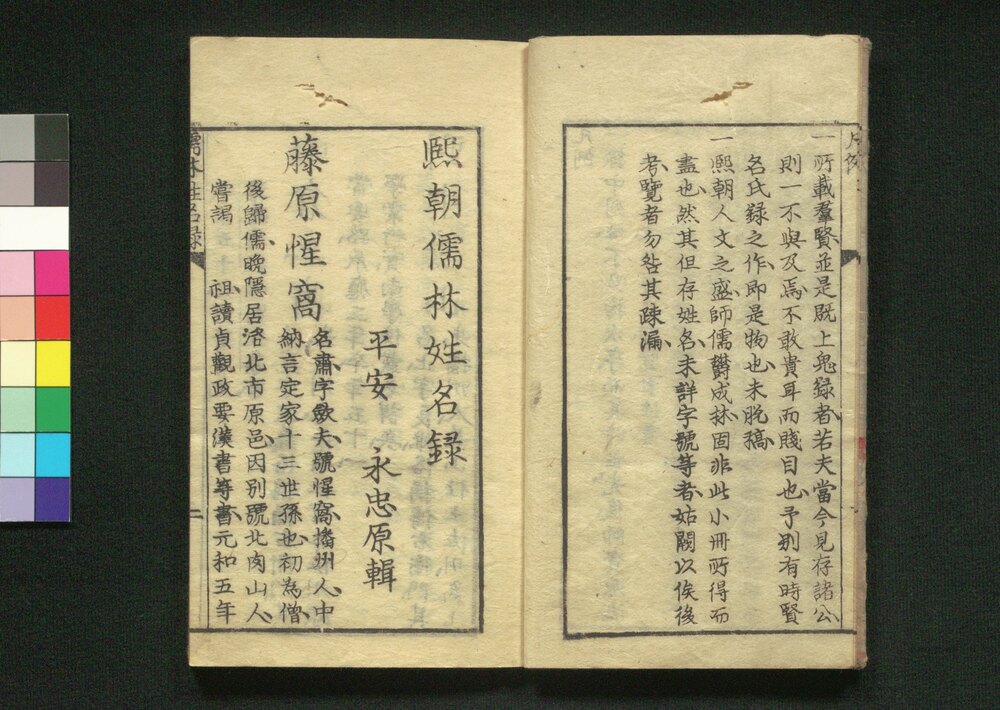 凡例
一所載羣賢並是既上鬼録者若夫當今見存諸公
則一不與及焉不敢貴耳而賤目也予别有時賢
名氏録之作即是物也未脱稿
一熙朝人文之盛師儒欝成林固非此小冊所得而
盡也然其但存姓名未詳字號等者姑闕以俟後
考覽者勿咎其疎漏
熙朝儒林姓名録
平安 永忠原輯
藤原惺窩
名肅字歛夫號惺窩播州人中
納言定家十三世孫也初為僧
後歸儒晩隱居洛北市原邑因别號北肉山人
嘗謁 祖讀貞觀政要漢書等書元和五年
儒林姓名録
二